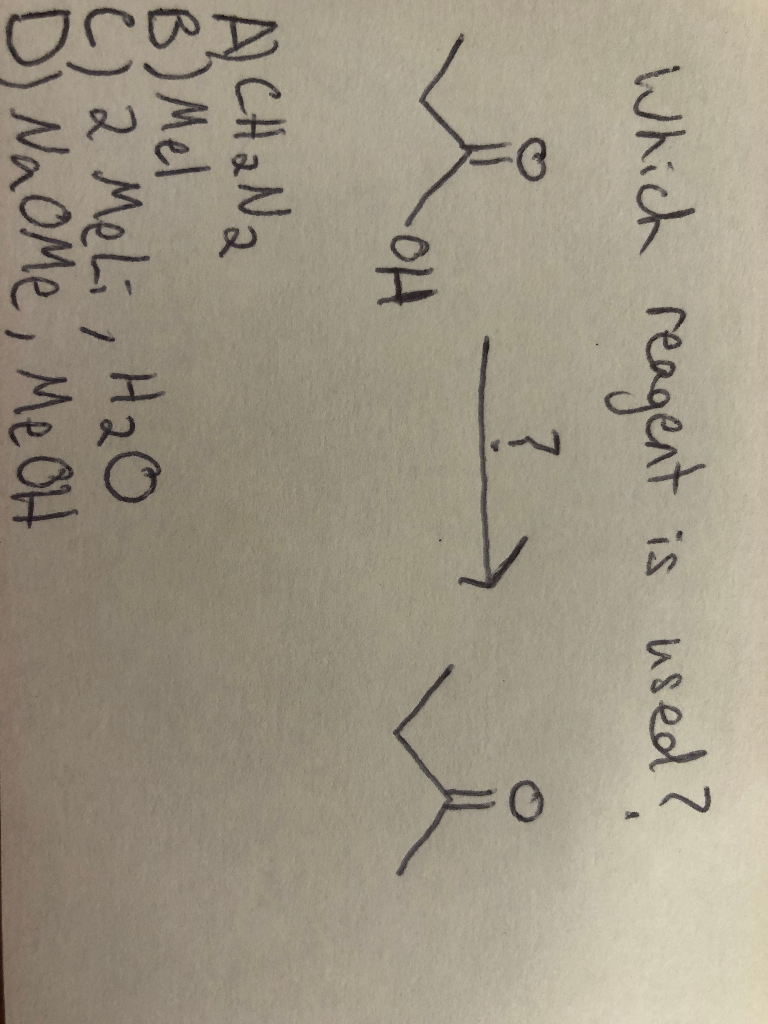 Which reagent is used?
O
OH
?
O
A) CH2N2
B) MeI
C) 2 MeLi, H2O
D) NaOMe, MeOH